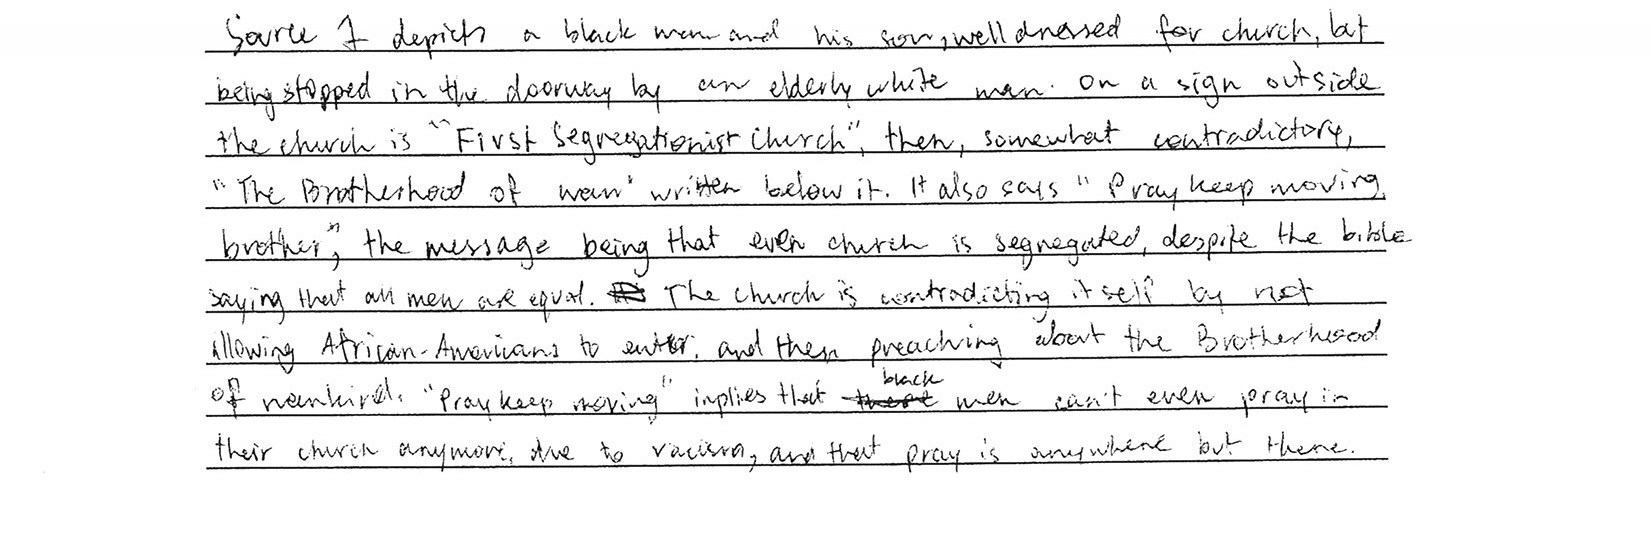 Source I depicts a black man and his son, well dressed for church, but
being stopped in the doorway by an elderly white man. On a sign outside
the church is "First Segregationist Church", then, somewhat contradictory,
"The Brotherhood of man" written below it. It also says "Pray keep moving
brother", the message being that even church is segregated, despite the bible
saying that all men are equal. The church is contradicting itself by not
allowing African-Americans to enter, and then preaching about the Brotherhood
of mankind. "Pray keep moving" inplies that black men can't even pray in
their church anymore, due to racism, and that pray is anywhere but there.